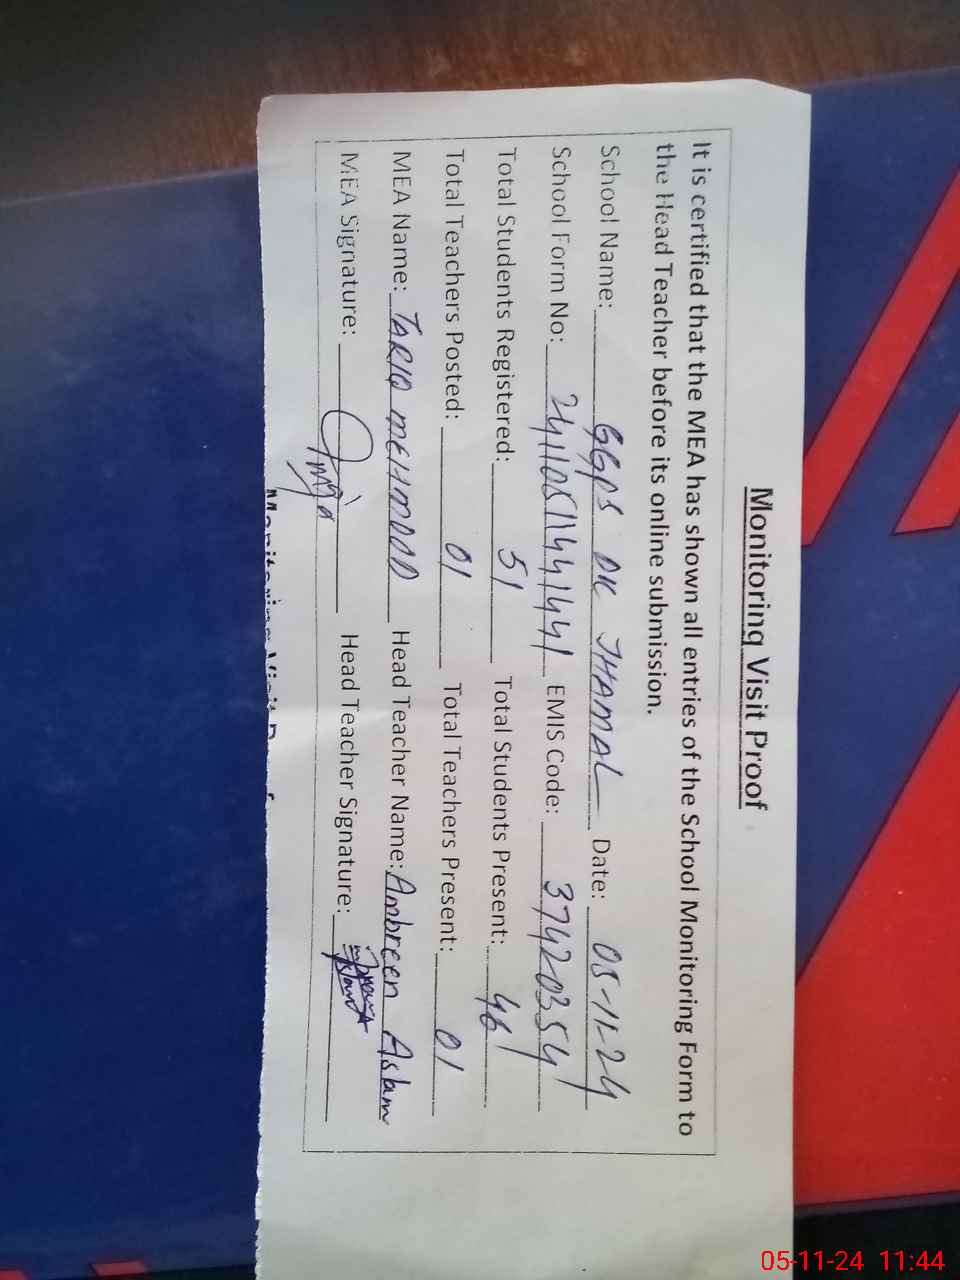 Monitoring Visit Proof
It is certified that the MEA has shown all entries of the School Monitoring Form to
the Head Teacher before its online submission.
School Name: GGPS DK JHAMAL Date: 05-11-24
School Form No: EMIS Code: 37420354
Total Students Registered: 51 Total Students Present: 46
Total Teachers Posted: 01 Total Teachers Present: 01
MEA Name: TARIQ MEHMOOD Head Teacher Name: Ambreen Aslam
MEA Signature: Head Teacher Signature:
05-11-24 11:44